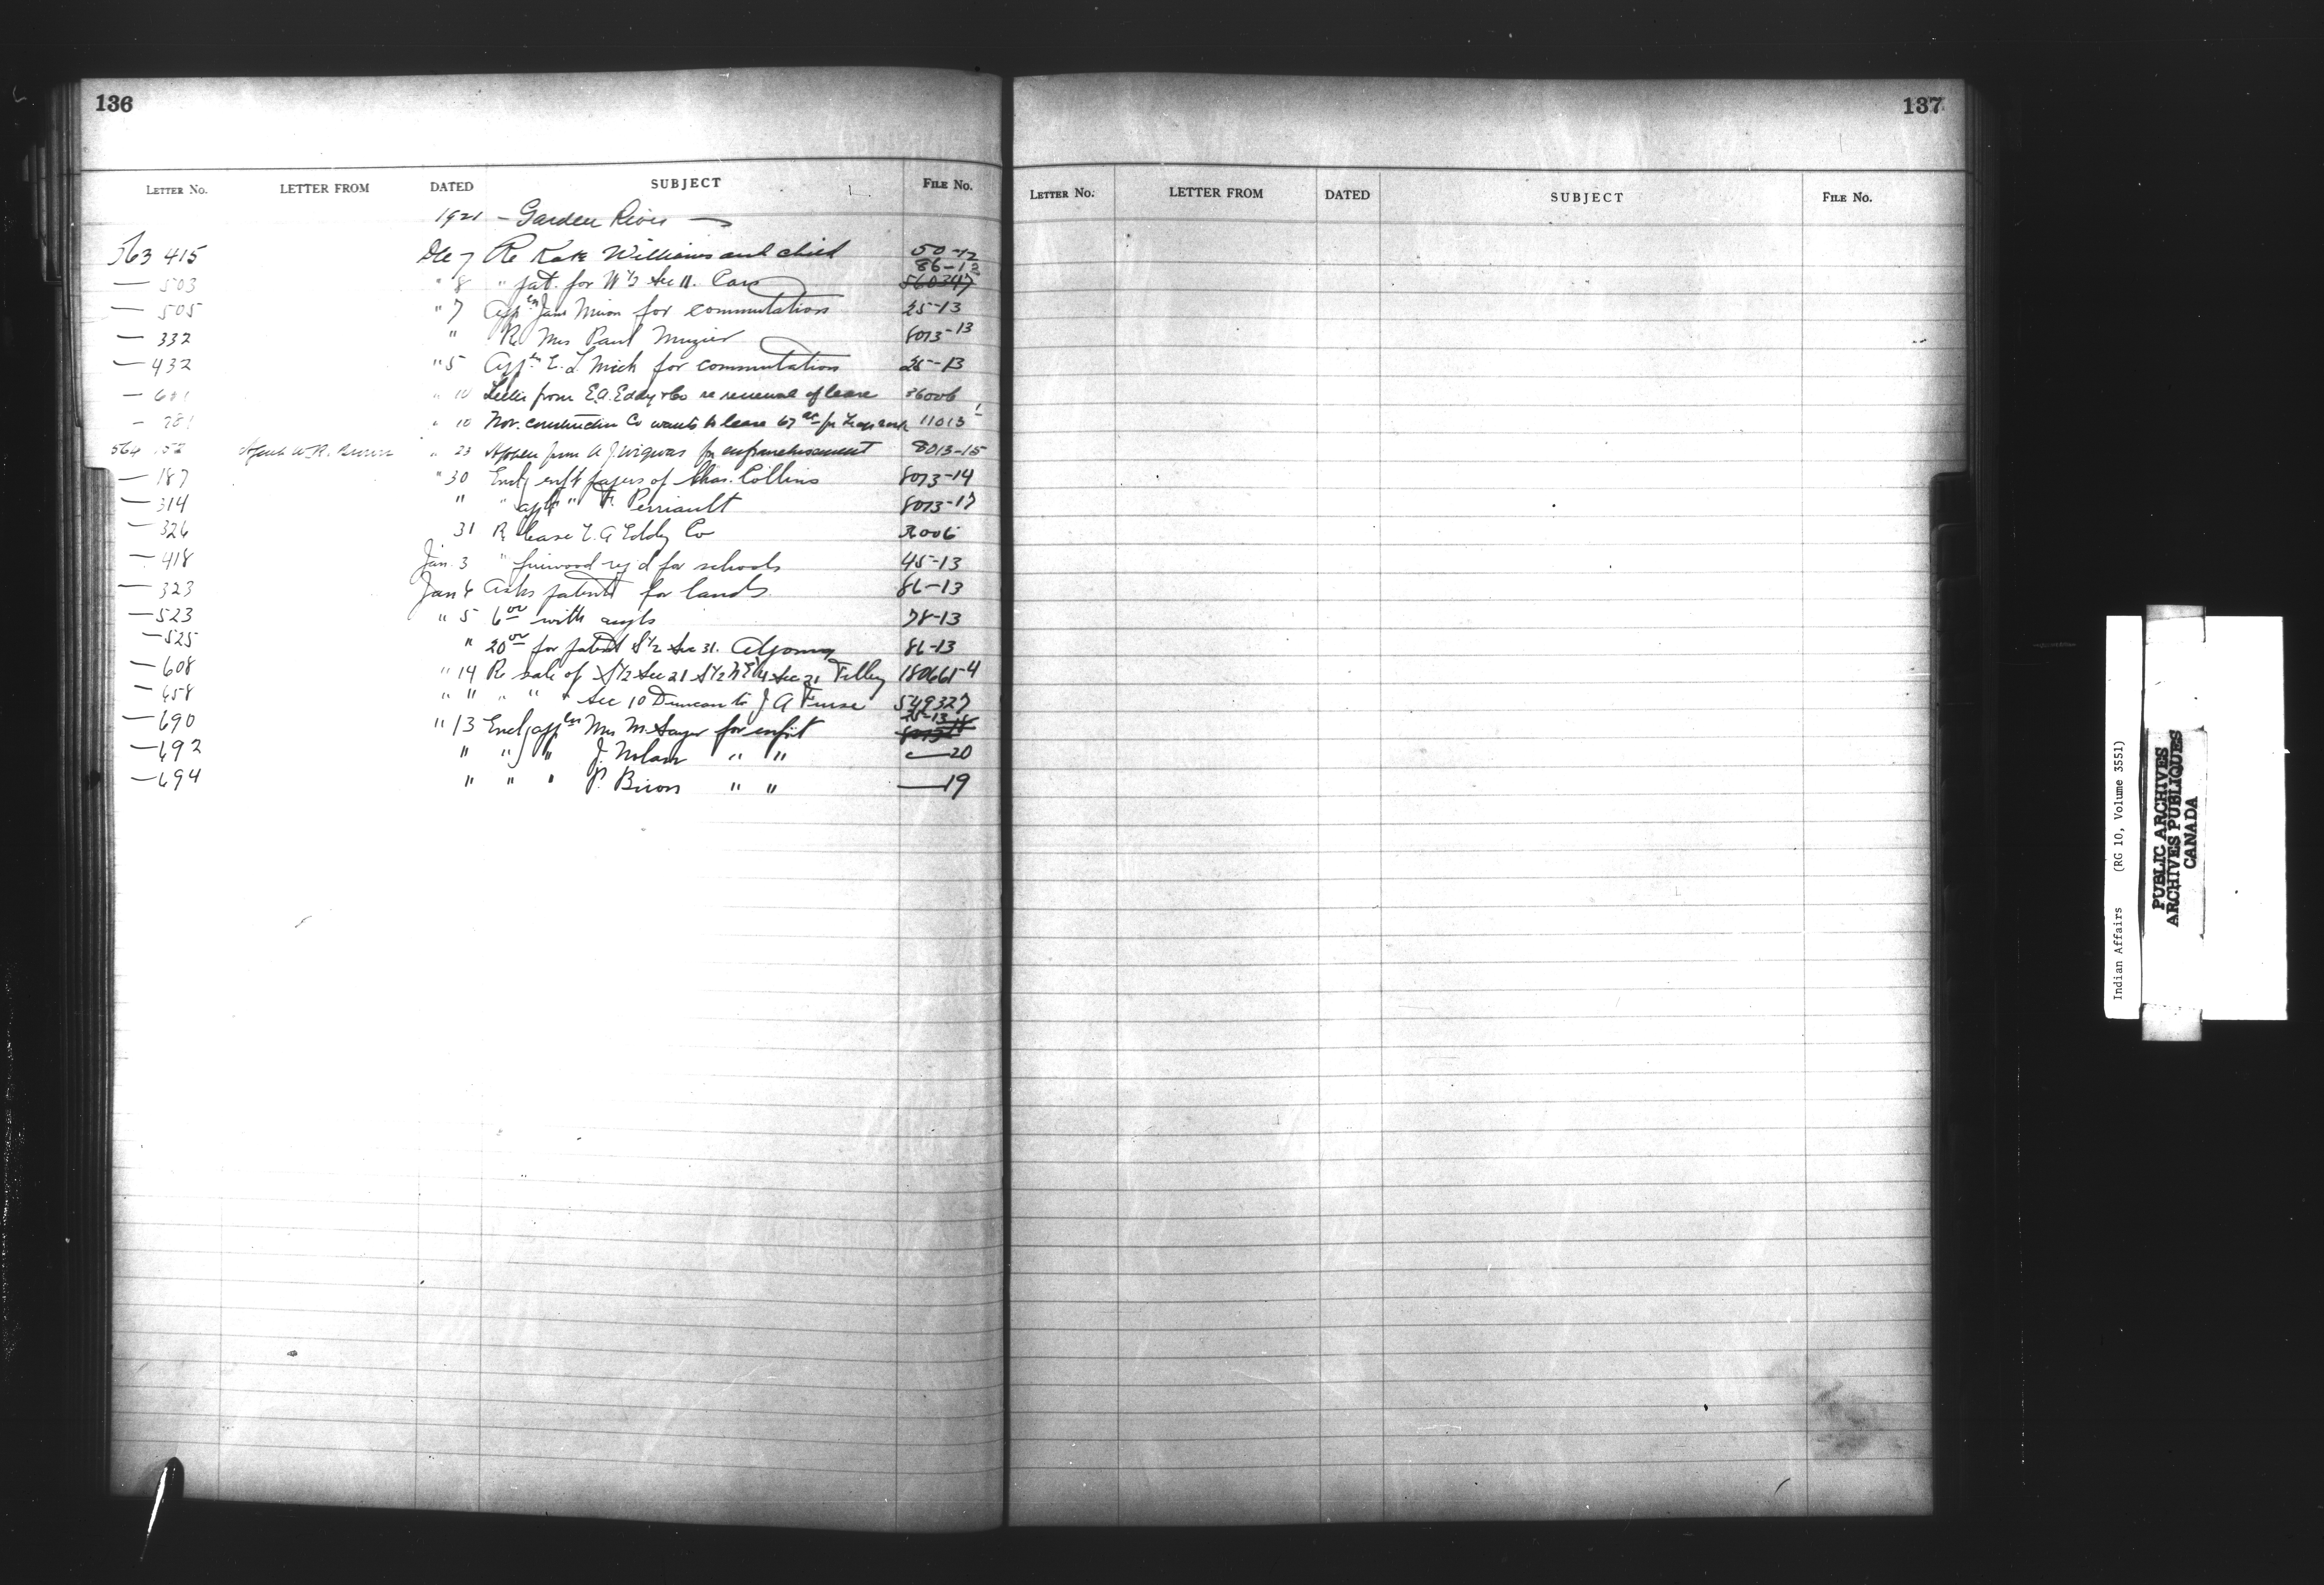 136
LETTER No. LETTER FROM DATED SUBJECT FILE No.
1921 - Garden River -
563 415 Dec 7 Re Kate Williams and child 50-12
86-13
— 503 " 8 " pat. for W½ Sec 11. 560347
— 505 " 7 App'n Jane for commutation 25-13
— 332 " Re Mrs Paul 8073-13
— 432 " 5 App'n E. L. Mich for commutation 25-13
— 601 " 10 Letter from E.A. Eddy & Co re renewal of lease 36006
— 781 " 10 Nor. construction Co wants to lease 67 ac for 11013
564 152 Agent W.R. " 23 from A J. Wigwas for enfranchisement 8013-15
— 187 " 30 Encl'g enf't papers of Chas. Collins 8073-14
— 314 " " app'n " F. Perriault 8073-17
— 326 31 Re lease E. A Eddy Co 36006
— 418 Jan. 3 " firewood req'd for schools 45-13
— 323 Jan 4 Asks patents for lands 86-13
— 523 " 5 6.00 with 78-13
— 525 " 20.00 for patent S½ Sec 31. 86-13
— 608 " 14 Re sale of S½ Sec 21 S½ NE¼ Sec 21 Tilley 180661-4
— 658 " " " " " Sec 10 Duncan to J A Furse 549327
25-13
— 690 " 13 Encl'g app'n Mrs M. Sayer for enf't 8073-18
— 692 " " " J. Nolan " " — 20
— 694 " " " P. Biron " " — 19
137
LETTER No. LETTER FROM DATED SUBJECT FILE No.
Indian Affairs (RG 10, Volume 3551)
PUBLIC ARCHIVES
ARCHIVES PUBLIQUES
CANADA